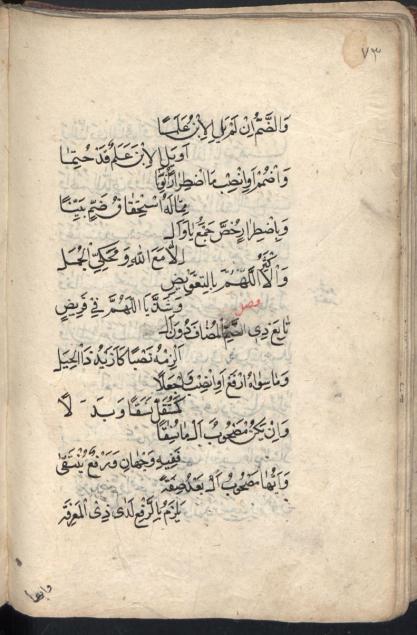 ٧٣
وَالضَّمُّ اِنْ لَمْ يَلِ الاِبْنُ عَلَمَا
اَوْ يَلِ الاِبْنَ عَلَمٌ قَدْ حُتِمَا
وَاضْمُمْ اَوِ انْصِبْ مَا اضْطِرَارًا نُوِّنَا
مِمَّا لَهُ اسْتِحْقَاقُ ضَمٍّ بُيِّنَا
وَبِاضْطِرَارٍ خُصَّ جَمْعُ يَا وَالْ
اِلَّا مَعَ اللهِ وَمَحْكِيِّ الْجُمَلْ
وَالْاَكْثَرُ اللّٰهُمَّ بِالتَّعْوِيضِ
وَشَذَّ يَا اللّٰهُمَّ فِي قَرِيضِ
فصل
تَابِعَ ذِي الضَّمِّ الْمُضَافَ دُونَ الْ
اَلْزِمْهُ نَصْبًا كَاَزَيْدُ ذَا الْحِيَلْ
وَمَا سِوَاهُ ارْفَعْ اَوِ انْصِبْ وَاجْعَلَا
كَمُسْتَقِلٍّ نَسَقًا وَبَدَلَا
وَاِنْ يَكُنْ مَصْحُوبَ الْ مَا نُسِقَا
فَفِيهِ وَجْهَانِ وَرَفْعٌ يُنْتَقَى
وَاَيُّهَا مَصْحُوبُ الْ بَعْدُ صِفَهْ
يَلْزَمُ بِالرَّفْعِ لَدَى ذِي الْمَعْرِفَهْ
وايها